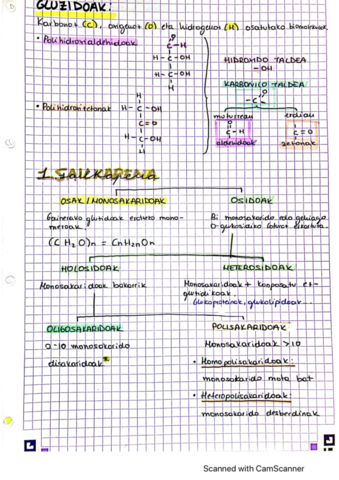 GLUZIDOAK:
Karbonoz (C), oxigenoz (O) eta hidrogenoz (H) osatutako biomolekulak.
• Polihidroxialdehidoak
O
C - H
H - C - OH
H - C - OH
H
HIDROXIDO TALDEA
- OH
KARBONILO TALDEA
O
- C -
muturrean
erdian
O
C - H
C = O
aldehidoak
zetonak
• Polihidroxizetonak
H
H - C - OH
C = O
H - C - OH
H
1. SAILKAPENA
OSAK / MONOSAKARIDOAK
OSIDOAK
Gainerako gluzidoak eratuko monomeroak.
Bi monosakarido edo gehiago
O-glukosidiko loturez elkartuta
(C H₂ O)n = CnH2nOn
HOLOSIDOAK
HETEROSIDOAK
Monosakaridoak bakarrik
Monosakaridoak + konposatu ez-
gluzidikoak.
Glukoproteinak, glukolipidoak...
OLIGOSAKARIDOAK
POLISAKARIDOAK
2-10 monosakarido
Monosakaridoak > 10
disakaridoak*
• Homopolisakaridoak:
monosakarido mota bat
• Heteropolisakaridoak:
monosakarido desberdinak
Scanned with CamScanner